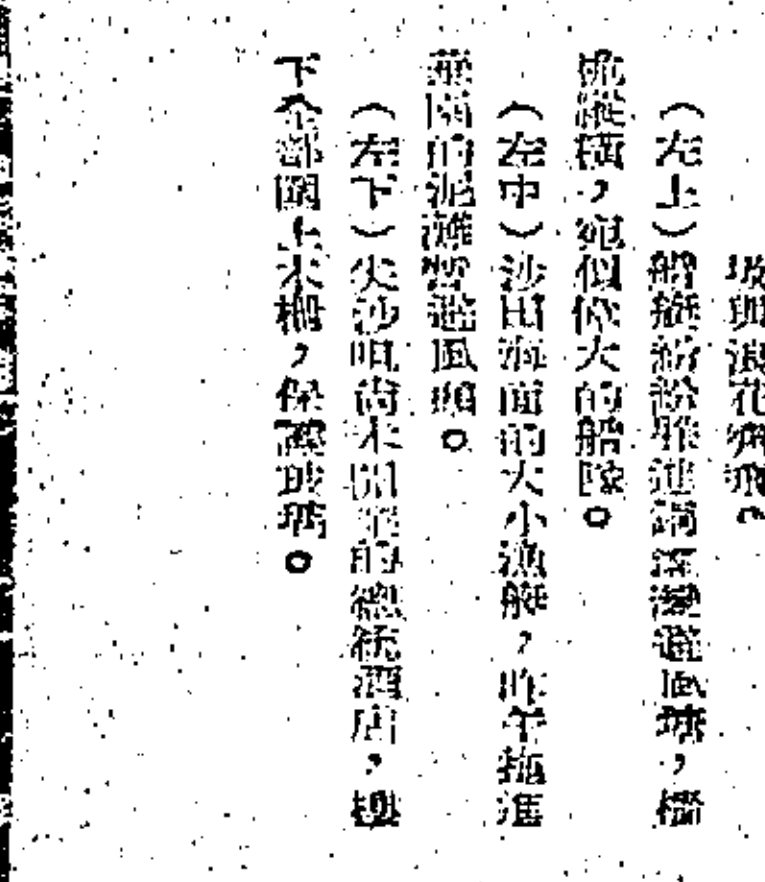 玻與浪花齊飛。
（左上）船艇紛紛駛進銅鑼灣避風塘，檣
桅縱橫，宛似偉大的船隊。
（左中）沙田海面的大小漁艇，昨午拖進
的泥灘暫避風頭。
（左下）尖沙咀尚未開業的總統酒店，樓
下全部圍上木柵，保護玻璃。